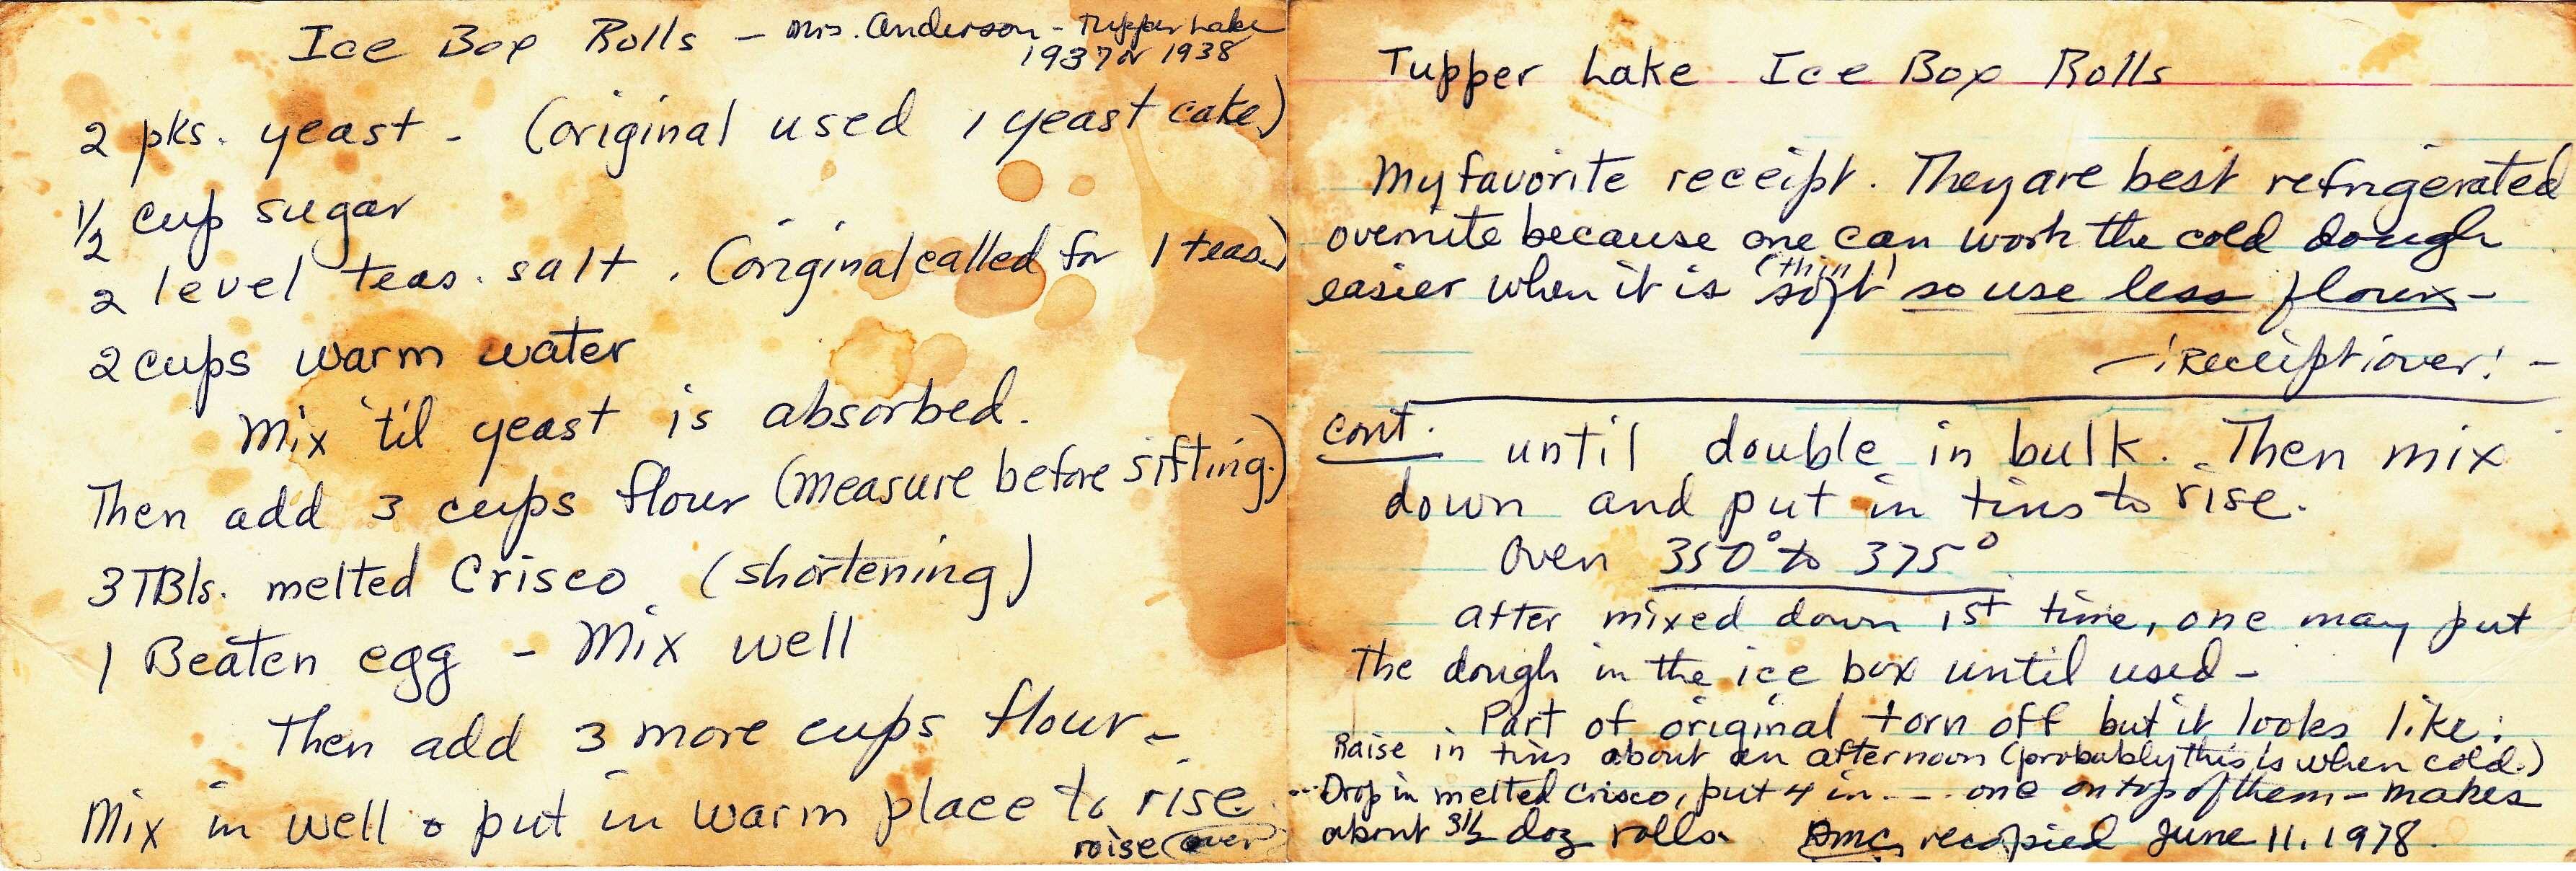 Ice Box Rolls - Mrs. Anderson - Tupper Lake
1937 or 1938
2 pks. yeast - (original used 1 yeast cake)
1/2 cup sugar
2 level teas. salt. (original called for 1 teas.)
2 cups warm water
Mix 'til yeast is absorbed.
Then add 3 cups flour (measure before sifting.)
3 TBls. melted Crisco (shortening)
1 Beaten egg - Mix well
Then add 3 more cups flour -
Mix in well & put in warm place to rise
raise (over)
Tupper Lake Ice Box Rolls
My favorite receipt. They are best refrigerated
overnite because one can work the cold dough
(thin)
easier when it is soft so use less flour -
- ! Receipt over! -
cont. until double in bulk. Then mix
down and put in tins to rise.
Oven 350° to 375°
After mixed down 1st time, one may put
the dough in the ice box until used -
Part of original torn off but it looks like:
Raise in tins about an afternoon (probably this is when cold.)
... Drop in melted Crisco, put 4 in - - - one on top of them - makes
about 3 1/2 doz rolls. recopied June 11, 1978.